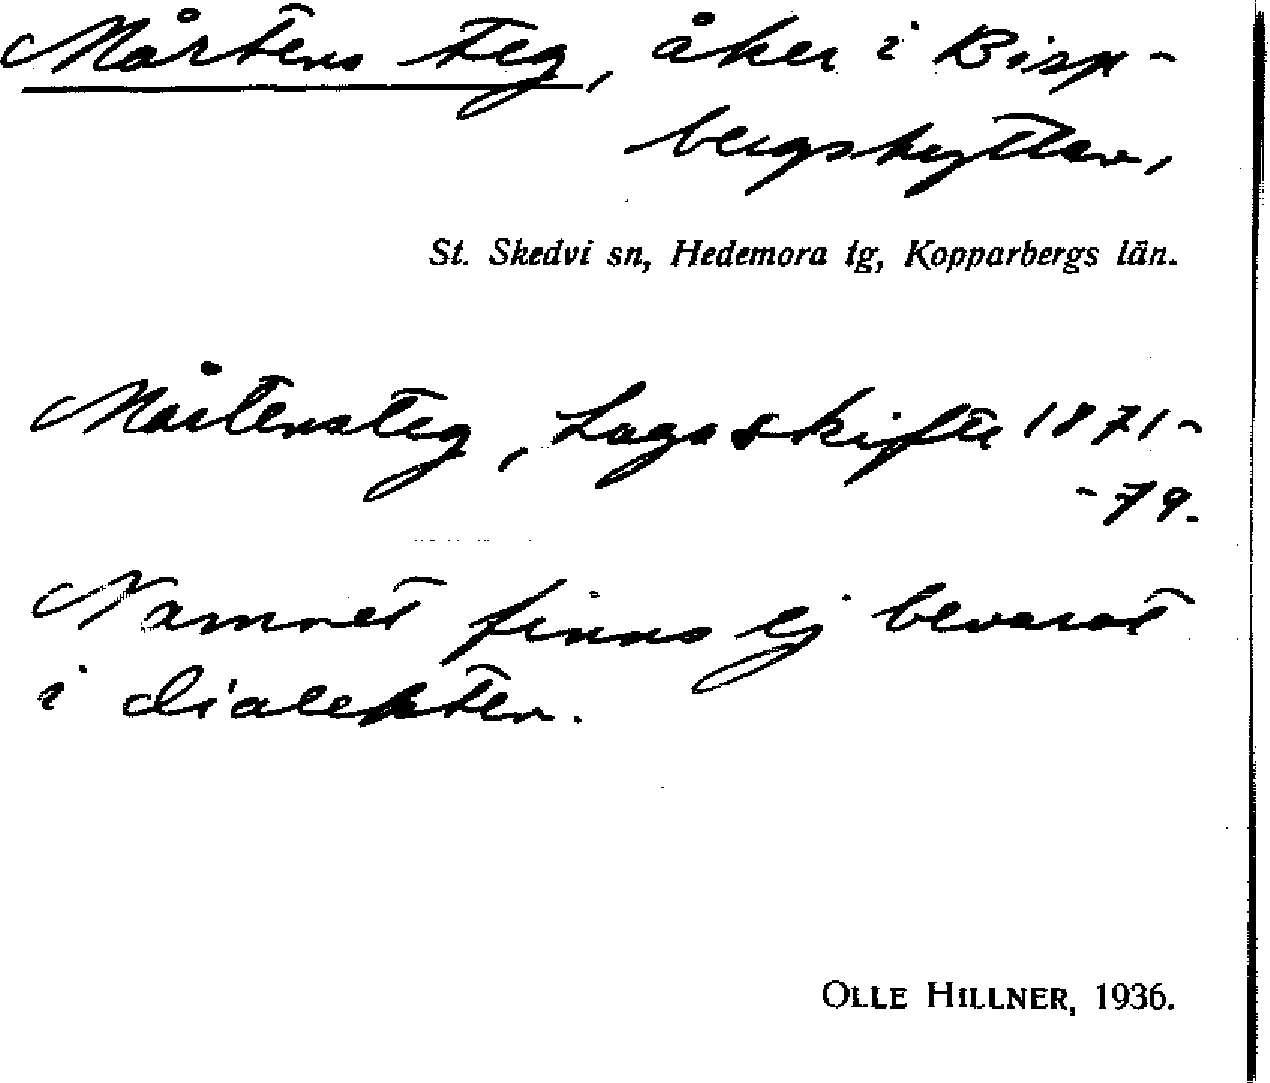 Mårtens teg, åker i Bisp-
bergshyttan,
St. Skedvi sn, Hedemora tg, Kopparbergs län.
Mårtensteg, Laga skifte 1871-
-79.
Namnet finns ej bevarat
i dialekten.
OLLE HILLNER, 1936.